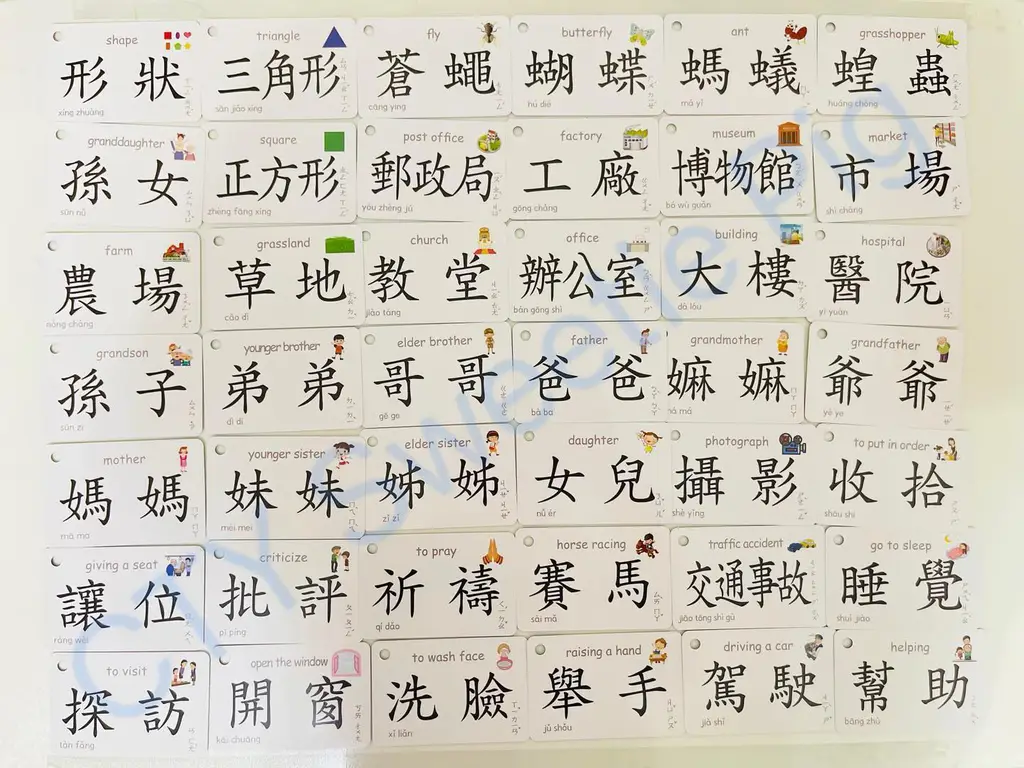 shape
形狀
xíng zhuàng
triangle
三角形
sān jiǎo xíng
fly
蒼蠅
cāng yíng
butterfly
蝴蝶
hú dié
ant
螞蟻
mǎ yǐ
grasshopper
蝗蟲
huáng chóng
granddaughter
孫女
sūn nǚ
square
正方形
zhèng fāng xíng
post office
郵政局
yóu zhèng jú
factory
工廠
gōng chǎng
museum
博物館
bó wù guǎn
market
市場
shì chǎng
farm
農場
nóng chǎng
grassland
草地
cǎo dì
church
教堂
jiào táng
office
辦公室
bàn gōng shì
building
大樓
dà lóu
hospital
醫院
yī yuàn
grandson
孫子
sūn zi
younger brother
弟弟
dì di
elder brother
哥哥
gē ge
father
爸爸
bà ba
grandmother
嫲嫲
má mā
grandfather
爺爺
yé ye
mother
媽媽
mā ma
younger sister
妹妹
mèi mei
elder sister
姊姊
zǐ zǐ
daughter
女兒
nǚ ér
photograph
攝影
shè yǐng
to put in order
收拾
shōu shí
giving a seat
讓位
ràng wèi
criticize
批評
pī píng
to pray
祈禱
qí dǎo
horse racing
賽馬
sài mǎ
traffic accident
交通事故
jiāo tōng shì gù
go to sleep
睡覺
shuì jiào
to visit
探訪
tàn fǎng
open the window
開窗
kāi chuāng
to wash face
洗臉
xǐ liǎn
raising a hand
舉手
jǔ shǒu
driving a car
駕駛
jià shǐ
helping
幫助
bāng zhù